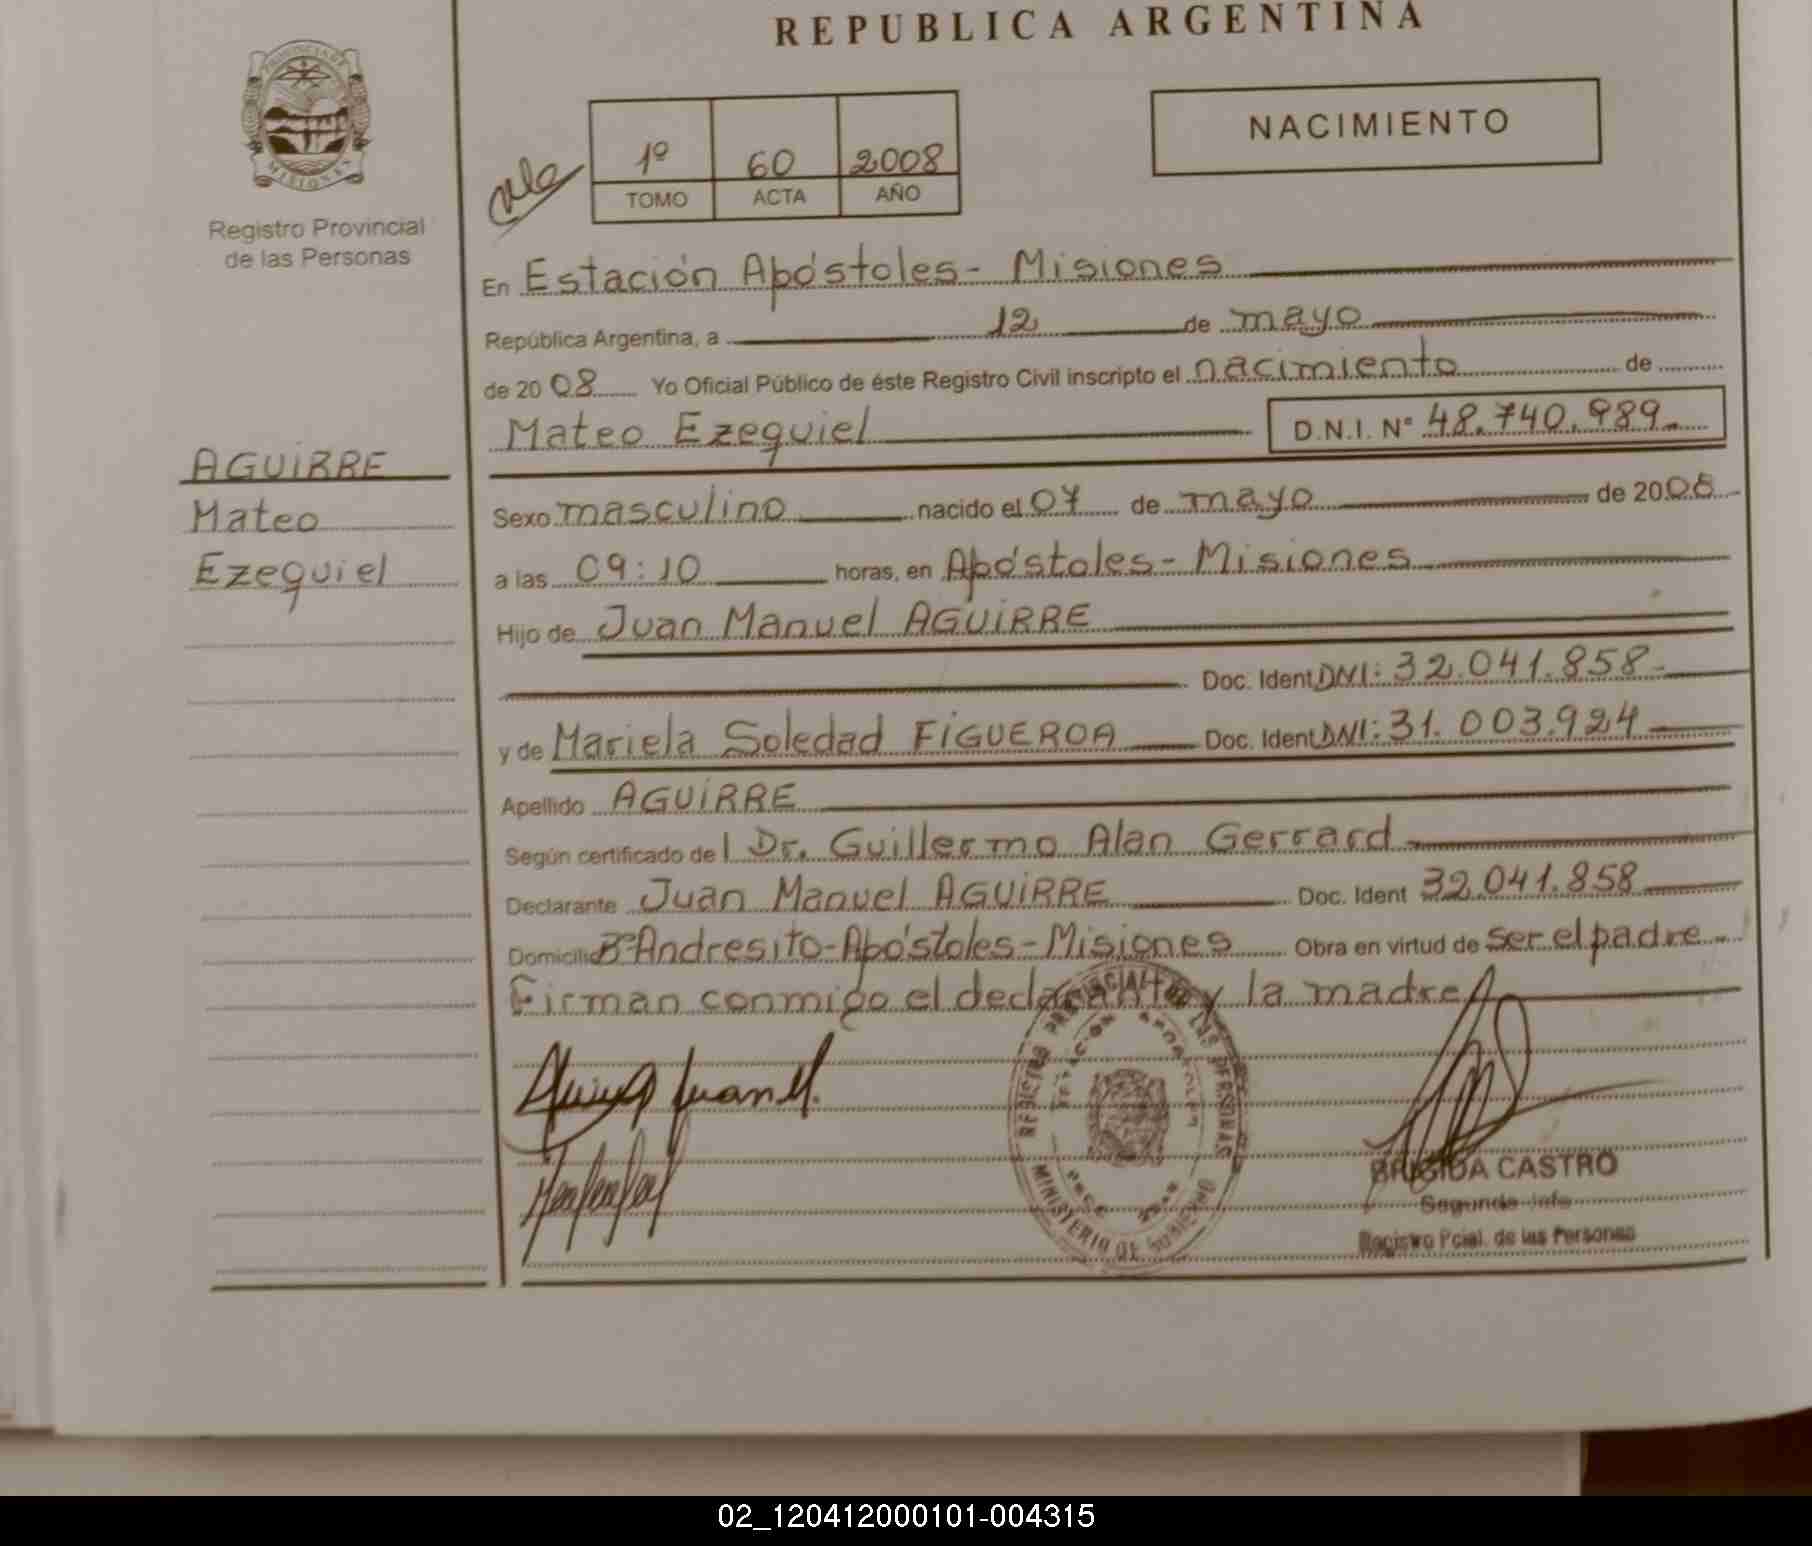 REPUBLICA ARGENTINA
PROVINCIA DE
MISIONES
Registro Provincial
de las Personas
NACIMIENTO
1º 60 2008
TOMO ACTA AÑO
En Estación Apóstoles - Misiones
República Argentina, a 12 de mayo
de 2008 Yo Oficial Público de éste Registro Civil inscripto el nacimiento de
Mateo Ezequiel D.N.I. N° 48.740.989.
AGUIRRE
Mateo
Ezequiel
Sexo masculino nacido el 07 de mayo de 2008
a las 09:10 horas, en Apóstoles - Misiones
Hijo de Juan Manuel AGUIRRE
Doc. Ident DNI: 32.041.858
y de Mariela Soledad FIGUEROA Doc. Ident DNI: 31.003.924
Apellido AGUIRRE
Según certificado del Dr. Guillermo Alan Gerrard
Declarante Juan Manuel AGUIRRE Doc. Ident 32.041.858
Domicilio Bº Andresito - Apóstoles - Misiones Obra en virtud de ser el padre
Firman conmigo el declarante y la madre
Juan M.
REGISTRO PROVINCIAL DE LAS PERSONAS
ESTACIÓN APOSTOLES
MINISTERIO DE GOBIERNO
BRIGIDA CASTRO
Segundo Jefe
Registro Pcial. de las Personas
02_120412000101-004315